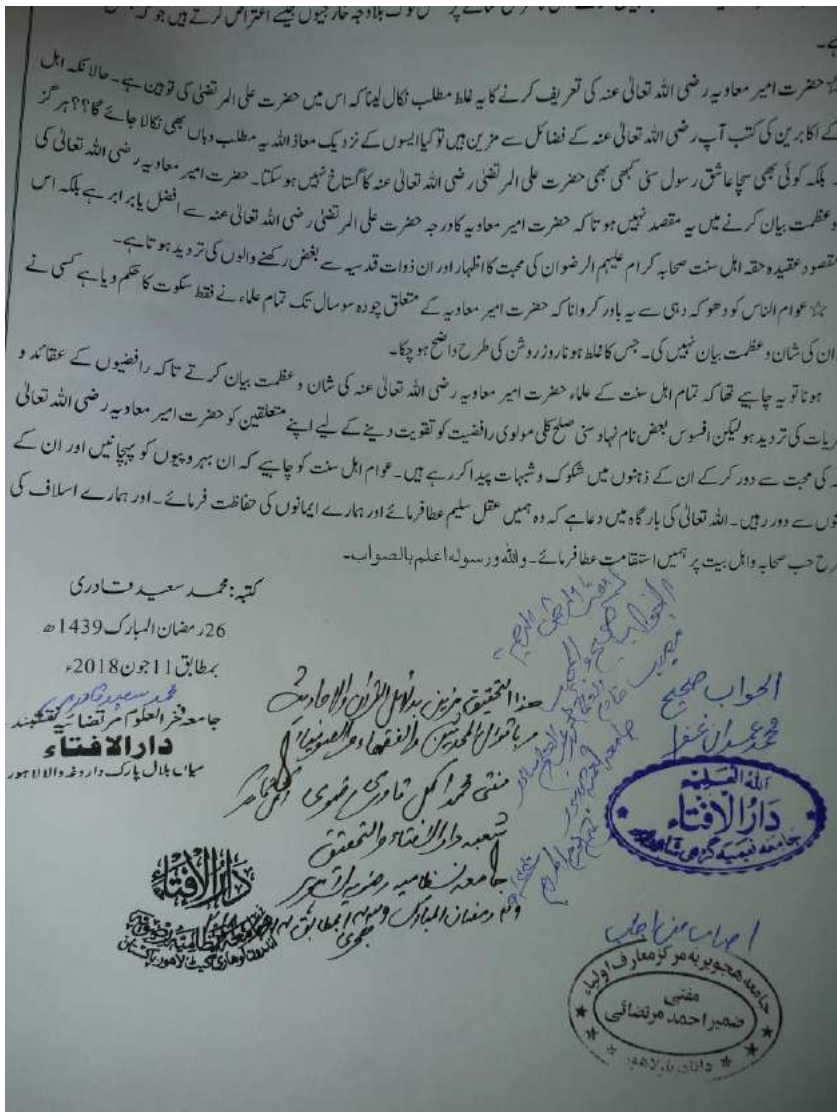 لوگ بلاوجہ خارجیوں جیسے اعتراض کرتے ہیں جو کہ
ہے۔
☆حضرت امیر معاویہ رضی اللہ تعالیٰ عنہ کی تعریف کرنے کا یہ غلط مطلب نکال لینا کہ اس میں حضرت علی المرتضیٰ کی توہین ہے۔ حالانکہ اہل
کے اکابرین کی کتب آپ رضی اللہ تعالیٰ عنہ کے فضائل سے مزین ہیں تو کیا ایسوں کے نزدیک معاذ اللہ یہ مطلب وہاں بھی نکالا جائے گا؟؟ ہرگز
۔ بلکہ کوئی بھی سچا عاشق رسول سنی کبھی بھی حضرت علی المرتضیٰ رضی اللہ تعالیٰ عنہ کا گستاخ نہیں ہو سکتا۔ حضرت امیر معاویہ رضی اللہ تعالیٰ کی
وعظمت بیان کرنے میں یہ مقصد نہیں ہوتا کہ حضرت امیر معاویہ کا درجہ حضرت علی المرتضیٰ رضی اللہ تعالیٰ عنہ سے افضل یا برابر ہے بلکہ اس
مقصود عقیدہ حقہ اہل سنت صحابہ کرام علیہم الرضوان کی محبت کا اظہار اور ان ذوات قدسیہ سے بغض رکھنے والوں کی تردید ہوتا ہے۔
☆عوام الناس کو دھوکہ دہی سے یہ باور کروانا کہ حضرت امیر معاویہ کے متعلق چودہ سو سال تک تمام علماء نے فقط سکوت کا حکم دیا ہے کسی نے
ان کی شان وعظمت بیان نہیں کی۔ جس کا غلط ہونا روز روشن کی طرح واضح ہو چکا۔
ہونا تو یہ چاہیے تھا کہ تمام اہل سنت کے علماء حضرت امیر معاویہ رضی اللہ تعالیٰ عنہ کی شان وعظمت بیان کرتے تاکہ رافضیوں کے عقائد و
ریات کی تردید ہو لیکن افسوس بعض نام نہاد سنی صلح کلی مولوی رافضیت کو تقویت دینے کے لیے اپنے متعلقین کو حضرت امیر معاویہ رضی اللہ تعالیٰ
کی محبت سے دور کرکے ان کے ذہنوں میں شکوک و شبہات پیدا کر رہے ہیں۔ عوام اہل سنت کو چاہیے کہ ان بہروپیوں کو پہچانیں اور ان کے
سے دور رہیں۔ اللہ تعالیٰ کی بارگاہ میں دعا ہے کہ وہ ہمیں عقل سلیم عطا فرمائے اور ہمارے ایمانوں کی حفاظت فرمائے۔ اور ہمارے اسلاف کی
رح حب صحابہ واہل بیت پر ہمیں استقامت عطا فرمائے۔ واللہ ورسولہ اعلم بالصواب۔
کتبہ: محمد سعید قادری
26رمضان المبارک 1439ھ
بمطابق 11جون 2018ء
محمد سعید قادری
جامعہ فخر العلوم مرتضائیہ نقشبند
دارالافتاء
میاں بلال پارک داروغہ والا لاہور
الجواب صحیح
اللہ العلیم
دارالافتاء
جامعہ نعیمیہ گڑھی شاہو لاہور
ھذا التحقیق مزین بدلائل القرآن والاحادیث
باقوال المحدثین والفقہاء والصوفیاء
مفتی محمد اکمل قادری رضوی
شعبہ دارالافتاء والتحقیق
جامعہ نظامیہ رضویہ لاہور
دارالافتاء
جامعہ نظامیہ رضویہ
اندرون لوہاری گیٹ لاہور پاکستان
اصاب من اجاب
جامعہ ہجویریہ مرکز معارف اولیاء
مفتی
ضمیر احمد مرتضائی